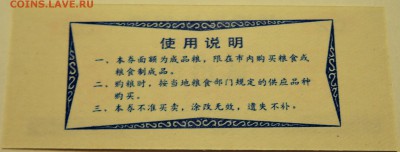 COINS.SU
使用说明
一、本券面额为成品粮，限在市内购买粮食或
粮食制成品。
二、购粮时，按当地粮食部门规定的供应品种
购买。
三、本券不准买卖，涂改无效，遗失不补。